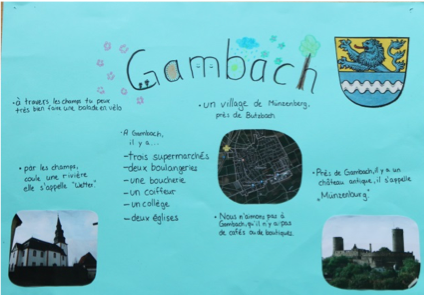 Gambach
• à travers les champs tu peux
très bien faire une balade en vélo
• par les champs,
coule une rivière
elle s'appelle "Wetter".
• À Gambach,
il y a...
– trois supermarchés
– deux boulangeries
– une boucherie
– un coiffeur
– un collège
– deux églises
• un village de Münzenberg,
près de Butzbach
• Nous n'aimons pas à
Gambach, qu'il n'y a pas
de cafés ou de boutiques.
• Près de Gambach, il y a un
château antique, il s'appelle
"Münzenburg".